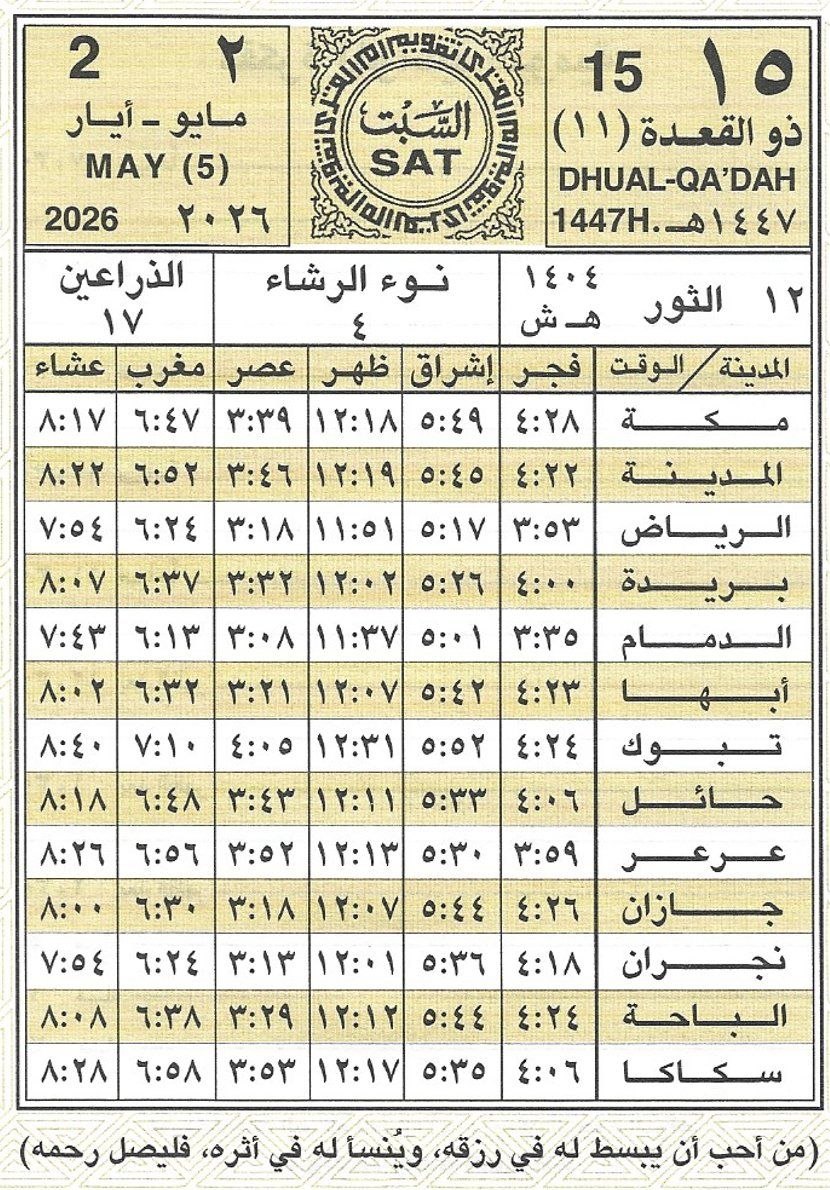 ١٥ 15
ذو القعدة (١١)
DHUAL-QA'DAH
1447H. ١٤٤٧هـ
السَّبْت
SAT
2 ٢
مايو - أيار
MAY (5)
2026 ٢٠٢٦
١٢ الثور ١٤٠٤ هـ ش
نوء الرشاء ٤
الذراعين ١٧
المدينة / الوقت فجر إشراق ظهر عصر مغرب عشاء
مكة ٤:٢٨ ٥:٤٩ ١٢:١٨ ٣:٣٩ ٦:٤٧ ٨:١٧
المدينة ٤:٢٢ ٥:٤٥ ١٢:١٩ ٣:٤٦ ٦:٥٢ ٨:٢٢
الرياض ٣:٥٣ ٥:١٧ ١١:٥١ ٣:١٨ ٦:٢٤ ٧:٥٤
بريدة ٤:٠٠ ٥:٢٦ ١٢:٠٢ ٣:٣٢ ٦:٣٧ ٨:٠٧
الدمام ٣:٣٥ ٥:٠١ ١١:٣٧ ٣:٠٨ ٦:١٣ ٧:٤٣
أبها ٤:٢٣ ٥:٤٢ ١٢:٠٧ ٣:٢١ ٦:٣٢ ٨:٠٢
تبوك ٤:٢٤ ٥:٥٢ ١٢:٣١ ٤:٠٥ ٧:١٠ ٨:٤٠
حائل ٤:٠٦ ٥:٣٣ ١٢:١١ ٣:٤٣ ٦:٤٨ ٨:١٨
عرعر ٣:٥٩ ٥:٣٠ ١٢:١٣ ٣:٥٢ ٦:٥٦ ٨:٢٦
جازان ٤:٢٦ ٥:٤٤ ١٢:٠٧ ٣:١٨ ٦:٣٠ ٨:٠٠
نجران ٤:١٨ ٥:٣٦ ١٢:٠١ ٣:١٣ ٦:٢٤ ٧:٥٤
الباحة ٤:٢٤ ٥:٤٤ ١٢:١٢ ٣:٢٩ ٦:٣٨ ٨:٠٨
سكاكا ٤:٠٦ ٥:٣٥ ١٢:١٧ ٣:٥٣ ٦:٥٨ ٨:٢٨
(من أحب أن يبسط له في رزقه، ويُنسأ له في أثره، فليصل رحمه)